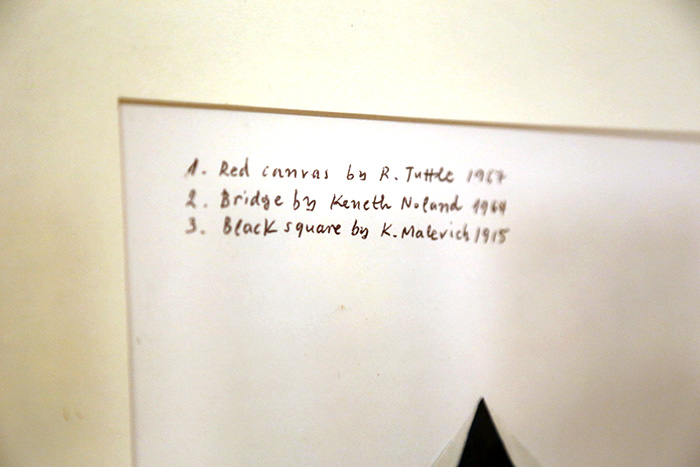 1. Red canvas by R. Tuttle 1967
2. Bridge by Keneth Noland 1964
3. Black square by K. Malevich 1915